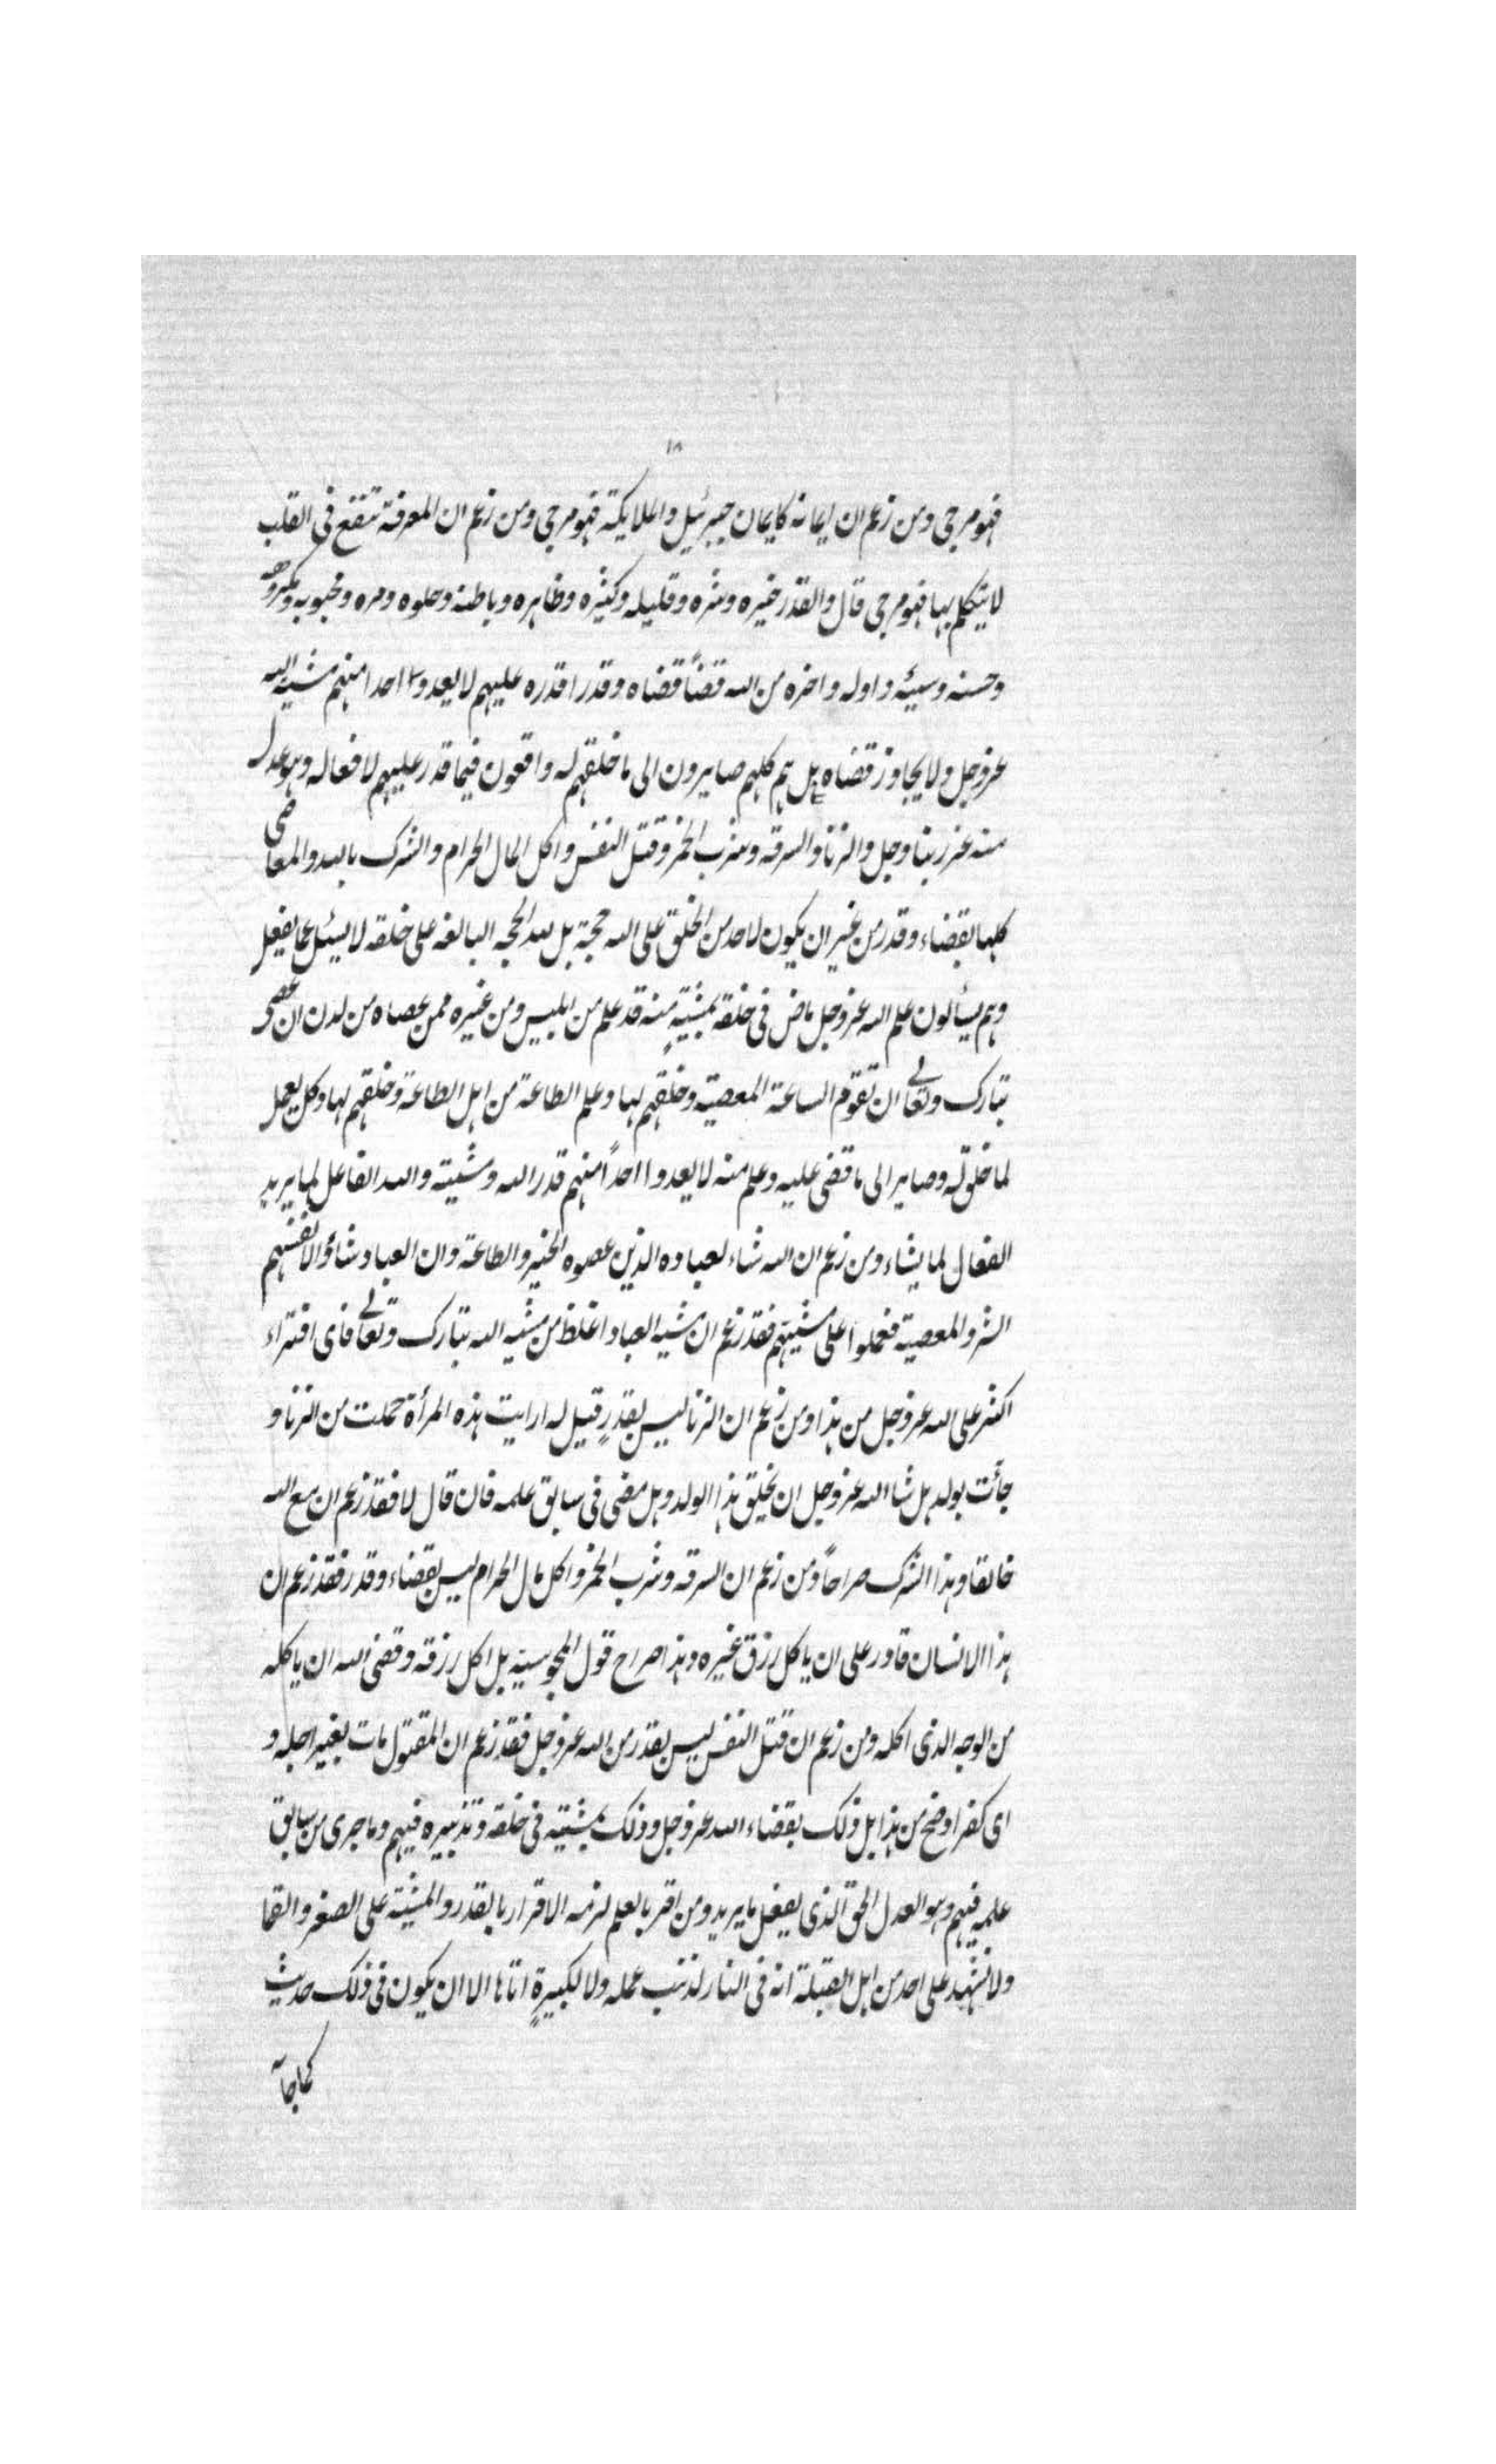 ١٨
فهو مرجي ومن زعم ان ايمانه كايمان جبرئيل والملايكة فهو مرجي ومن زعم ان المعرفة تنفع في القلب
لا يتكلم بها فهو مرجي قال والقدر خيره وشره وقليله وكثيره وظاهره وباطنه وحلوه ومره ومحبوبه ومكروهه
وحسنه وسيئه واوله واخره من الله قضاً قضاه وقدرا قدره عليهم لا يعدوا احدا منهم مشية الله
عزوجل ولا يجاوز قضاه بل هم كلهم صايرون الى ما خلقهم له واقعون فيما قدر عليهم لا فعاله وهو عدل
منه عز ربنا وجل والزنا والسرقه وشرب الخمر وقتل النفس واكل المال الحرام والشرك بالله والمعاصي
كلها بقضاء وقدر من غير ان يكون لاحد من الخلق على الله حجة بل لله الحجه البالغه على خلقه لا يسئل عما يفعل
وهم يسألون علم الله عزوجل ماض في خلقه بمشيةٍ منه قد علم من ابليس ومن غيره ممن عصاه من لدن ان عصى
تبارك وتعالى ان تقوم الساعة المعصية وخلقهم لها وعلم الطاعة من اهل الطاعة وخلقهم لها وكل يعمل
لما خلق له وصاير الى ما قضى عليه وعلم منه لا يعدوا احداً منهم قدر الله ومشيته والله الفاعل لما يريد
الفعال لما يشاء ومن زعم ان الله شاء لعباده الذين عصوه الخير والطاعة وان العباد شاؤا لانفسهم
الشر والمعصية فعملوا على مشيتهم فقد زعم ان مشية العباد اغلظ من مشية الله تبارك وتعالى فاى افتراء
اكثر على الله عزوجل من هذا ومن زعم ان الزنا ليس بقدرٍ قيل له ارايت هذه المرأة حملت من الزنا و
جأت بولد هل شا الله عزوجل ان يخلق هذا الولد وهل مضى في سابق علمه فان قال لا فقد زعم ان مع الله
خالقا وهذا الشرك صراحاً ومن زعم ان السرقه وشرب الخمر واكل مال الحرام ليس بقضاء وقدر فقد زعم ان
هذا الانسان قادر على ان ياكل رزق غيره وهذا صراح قول المجوسية بل اكل رزقه وقضى الله ان ياكله
من الوجه الذي اكله ومن زعم ان قتل النفس ليس بقدر من الله عزوجل فقد زعم ان المقتول مات بغير اجله و
اى كفر اوضح من هذا بل ذلك بقضاء الله عزوجل وذلك بمشيته في خلقه وتدبيره فيهم وما جرى من سابق
علمه فيهم وهو العدل الحق الذي يفعل ما يريد ومن اقر بالعلم لزمه الاقرار بالقدر والمشية على الصغر والقما
ولا نشهد على احد من اهل القبلة انه في النار لذنب عمله ولا لكبيرةٍ اتاها الا ان يكون في ذلك حديث
كما جاء